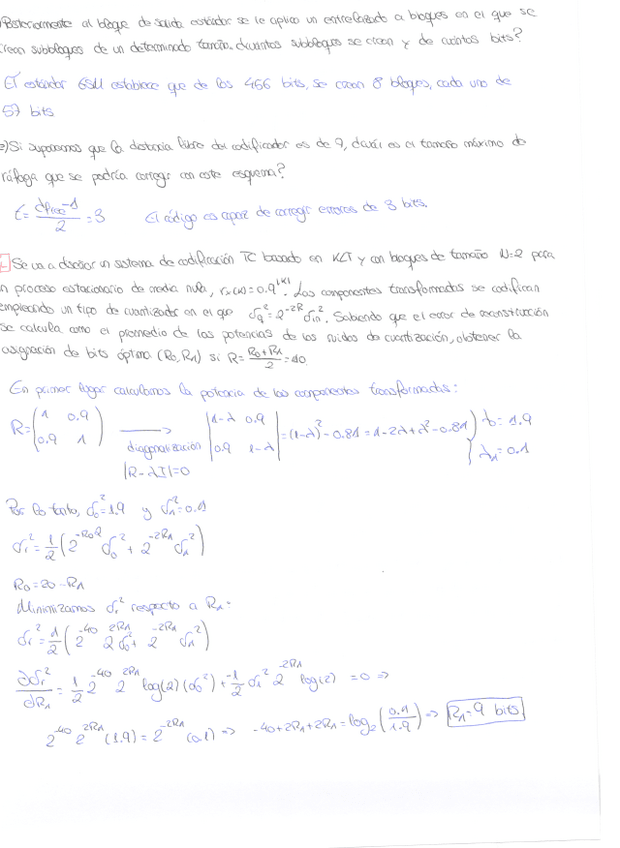 Posteriormente al bloque de salida estándar se le aplica un entrelazado a bloques en el que se
crean subbloques de un determinado tamaño. ¿Cuántos subbloques se crean y de cuántos bits?
El estándar GSM establece que de los 456 bits, se crean 8 bloques, cada uno de
57 bits
e) Si suponemos que la distancia libre del codificador es de 7, ¿cuál es el tamaño máximo de
ráfaga que se podría corregir con este esquema?
t = (dfree-1)/2 = 3 El código es capaz de corregir errores de 3 bits.
Se va a diseñar un sistema de codificación TC basado en KLT y con bloques de tamaño N=2 para
un proceso estacionario de media nula, rx(k)=0.9^|k|. Las componentes transformadas se codifican
empleando un tipo de cuantizador en el que σq²=2^-2R σin². Sabiendo que el error de reconstrucción
se calcula como el promedio de las potencias de los ruidos de cuantización, obtener la
asignación de bits óptima (R0,R1) si R=(R0+R1)/2=10
En primer lugar calculamos la potencia de las componentes transformadas:
R=(1 0.9; 0.9 1) → diagonalización |R-λI|=0 |1-λ 0.9; 0.9 1-λ| =(1-λ)²-0.81=1-2λ+λ²-0.81 } λ0=1.9 λ1=0.1
Por lo tanto, σ0²=1.9 y σ1²=0.1
σr²=1/2(2^-R02 σ0²+2^-2R1 σ1²)
R0=20-R1
Minimizamos σr² respecto a R1:
σr²=1/2(2^-40 2^2R1 σ0²+2^-2R1 σ1²)
∂σr²/∂R1=1/2 2^-40 2^2R1 log(2)(σ0²)+-1/2 σ1² 2^-2R1 log(2) =0 ⇒
2^-40 2^2R1 (1.9)=2^-2R1 (0.1) ⇒ -40+2R1+2R1=log2(0.1/1.9) ⇒ R1=9 bits